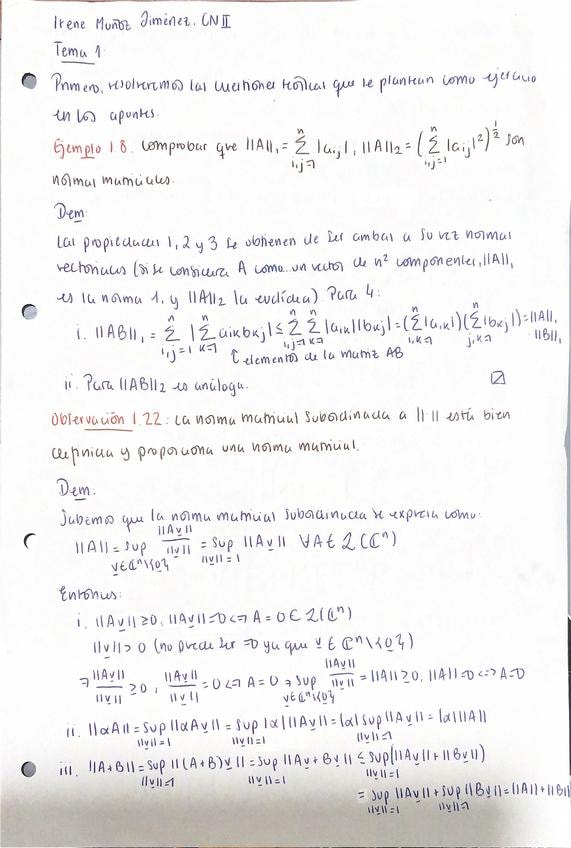 Irene Muñoz Jiménez, CN II
Tema 1
Primero, resolveremos las cuestiones teóricas que se plantean como ejercicio
en los apuntes.
Ejemplo 1.8. Comprobar que ||A||₁ = Σ_{i,j=1}^n |a_{ij}|, ||A||₂ = (Σ_{i,j=1}^n |a_{ij}|²)^{1/2} son
normas matriciales.
Dem:
Las propiedades 1, 2 y 3 se obtienen de ser ambas a su vez normas
vectoriales (si se considera A como un vector de n² componentes, ||A||₁
es la norma 1, y ||A||₂ la euclídea). Para 4:
i. ||AB||₁ = Σ_{i,j=1}^n |Σ_{k=1}^n a_{ik}b_{kj}| ≤ Σ_{i,j=1}^n Σ_{k=1}^n |a_{ik}||b_{kj}| = (Σ_{i,k=1}^n |a_{ik}|)(Σ_{j,k=1}^n |b_{kj}|) = ||A||₁
·||B||₁
↑ elementos de la matriz AB
ii. Para ||AB||₂ es análoga.
Observación 1.22: La norma matricial subordinada a || || está bien
definida y proporciona una norma matricial.
Dem:
Sabemos que la norma matricial subordinada se expresa como:
||A|| = sup_{v∈ℂⁿ\{0}} ||Av||/||v|| = sup_{||v||=1} ||Av|| ∀A∈ℒ(ℂⁿ)
Entonces:
i. ||Av|| ≥ 0, ||Av|| = 0 <=> A = 0 ∈ ℒ(ℂⁿ)
||v|| > 0 (no puede ser =0 ya que v ∈ ℂⁿ\{0})
⇒ ||Av||/||v|| ≥ 0, ||Av||/||v|| = 0 <=> A = 0 ⇒ sup_{v∈ℂⁿ\{0}} ||Av||/||v|| = ||A|| ≥ 0, ||A|| = 0 <=> A = 0
ii. ||αA|| = sup_{||v||=1} ||αAv|| = sup_{||v||=1} |α| ||Av|| = |α| sup_{||v||=1} ||Av|| = |α| ||A||
iii. ||A+B|| = sup_{||v||=1} ||(A+B)v|| = sup_{||v||=1} ||Av + Bv|| ≤ sup_{||v||=1} (||Av|| + ||Bv||)
= sup_{||v||=1} ||Av|| + sup_{||v||=1} ||Bv|| = ||A|| + ||B||